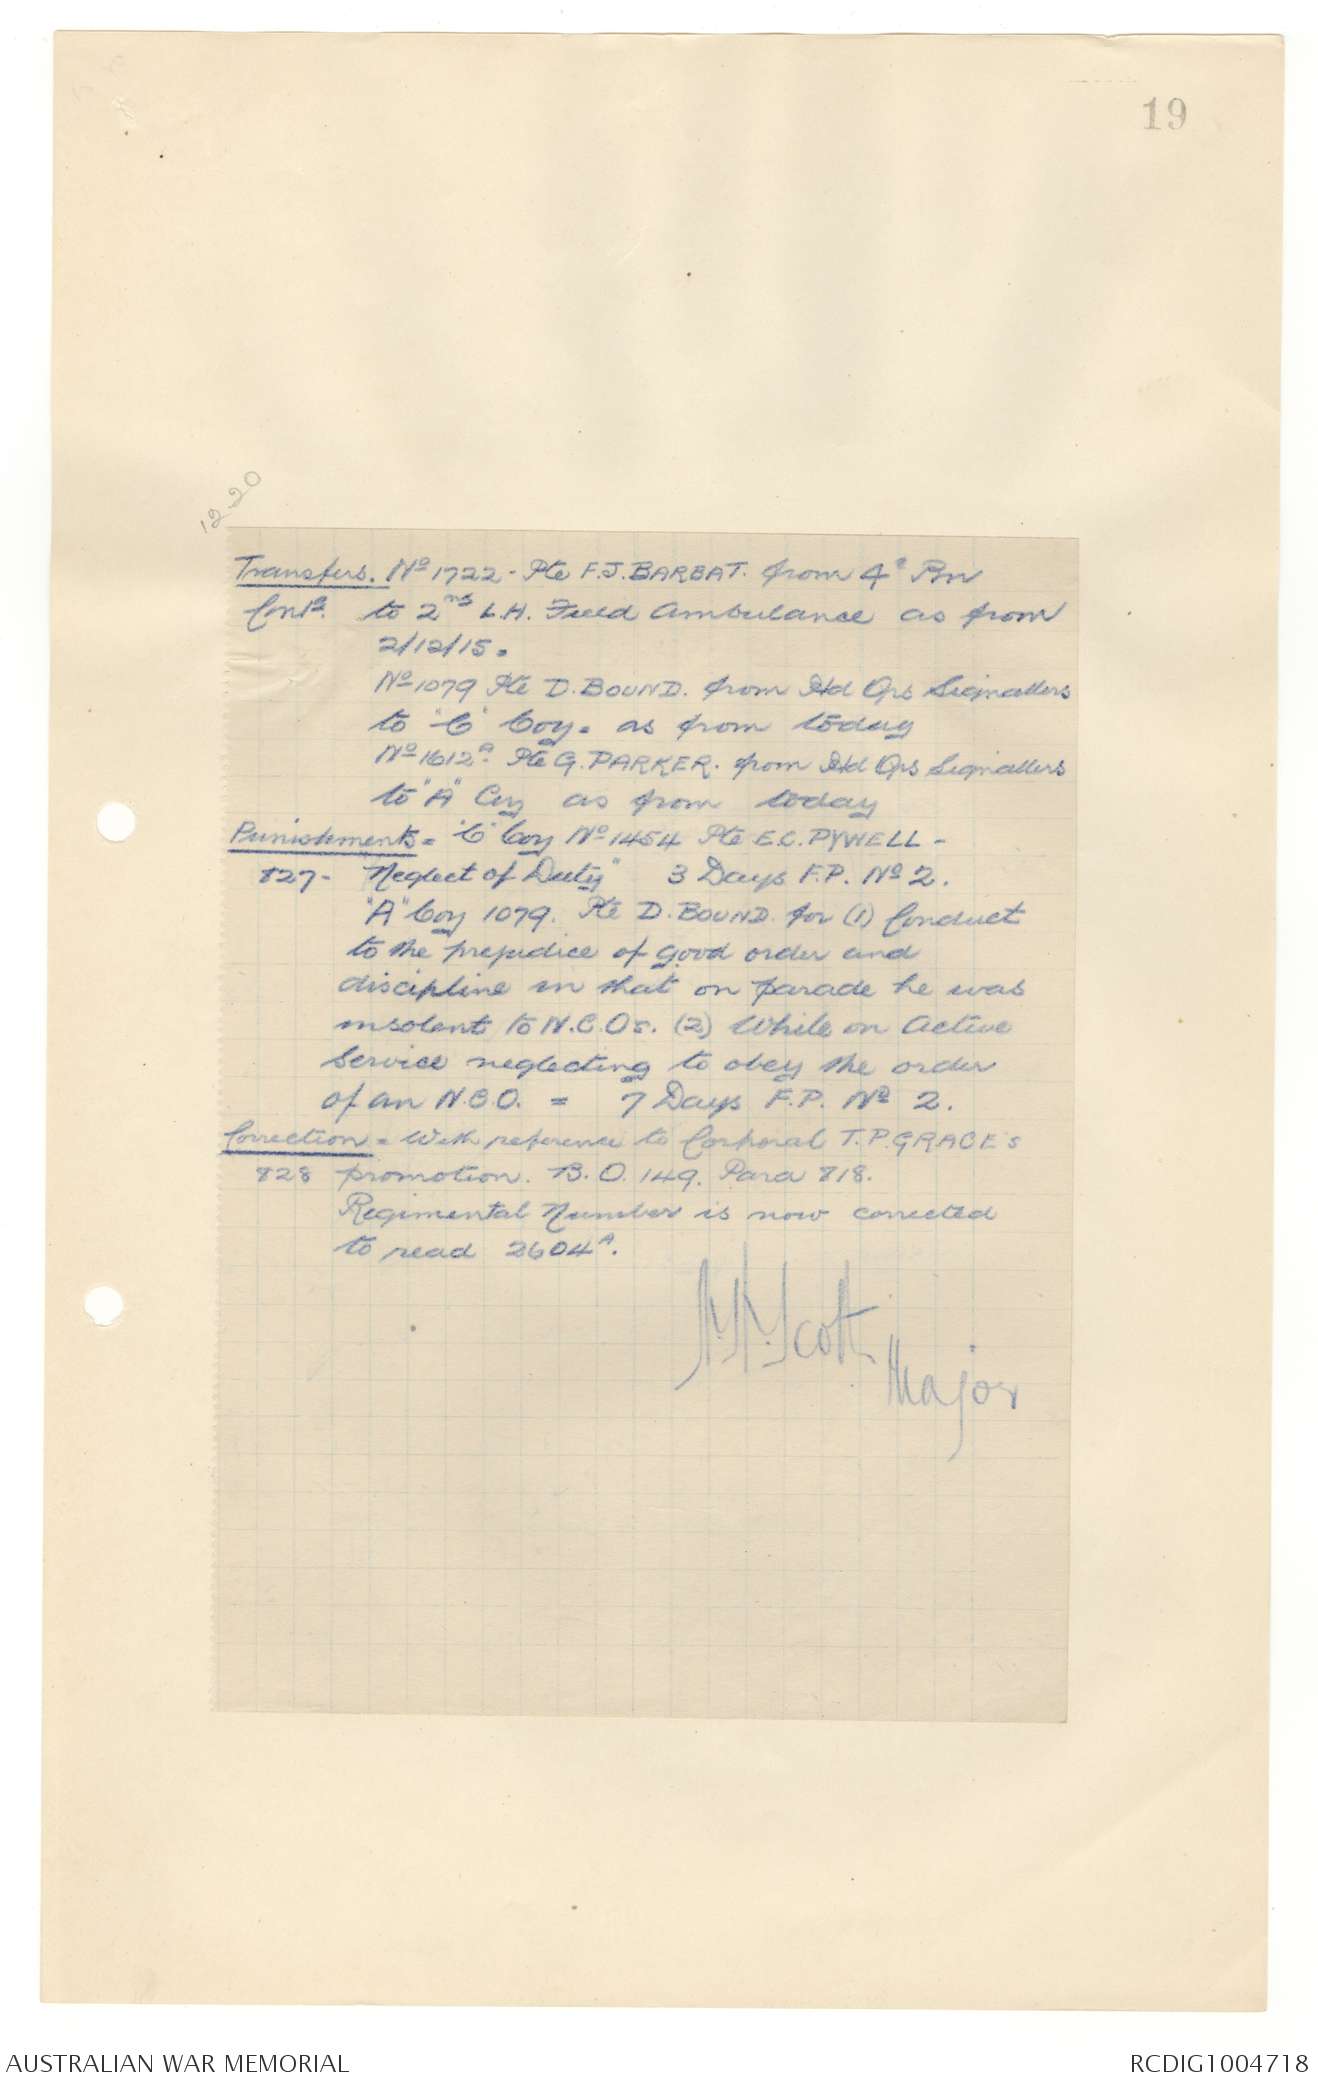 19
12 20
Transfers. No 1722 - Pte F.J. BARBAT. from 4th Bn
Contd. to 2nd L.H. Field Ambulance as from
2/12/15.
No 1079 Pte D. BOUND. from Hd Qrs Signallers
to "C" Coy. as from today
No 1612A. Pte G. PARKER. from Hd Qrs Signallers
to "A" Coy as from today
Punishments = "C" Coy No 1454 Pte E.C. PYWELL -
827 - "Neglect of Duty" 3 Days F.P. No 2.
"A" Coy 1079. Pte D. BOUND. for (1) Conduct
to the prejudice of good order and
discipline in that on parade he was
insolent to N.C.Os. (2) While on active
service neglecting to obey the order
of an N.C.O. = 7 Days F.P. No 2.
Correction = With reference to Corporal T.P. GRACE's
828 promotion. B.O. 149. Para 818.
Regimental Number is now corrected
to read 2604A.
Scott
Major
AUSTRALIAN WAR MEMORIAL
RCDIG1004718